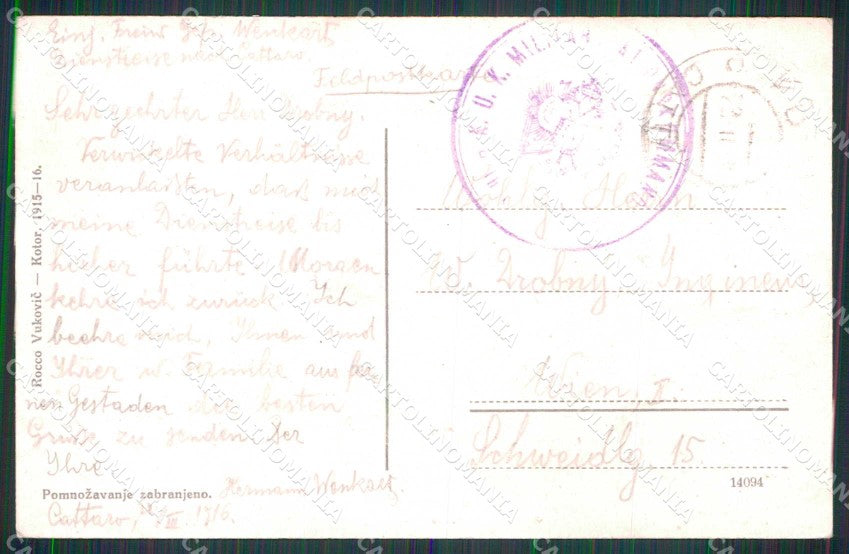 Einj. Freiw Wenkart
Dienstreise nach Cattaro
Feldpostkarte
Sehrgeehrter Herr Drobny.
Verwickelte Verhältnisse
veranlaßten, daß mich
meine Dienstreise bis
hieher führte. Morgen
kehre ich zurück. Ich
beehre mich, Ihnen und
Ihrer w. Familie aus
Gestaden die besten
Grüße zu senden. Der
Ihre
Hermann Wenkart
Cattaro, III 1916.
Pomnožavanje zabranjeno.
Rocco Vuković — Kotor, 1915—16.
K. U. K. MILITÄR
Ed. Drobny, Ingineur
Wien, I.
Schweidlg 15.
14094
CARTOLINOMANIA